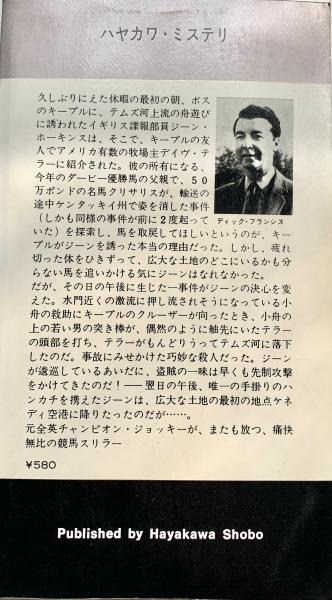 ハヤカワ・ミステリ
久しぶりにえた休暇の最初の朝、ボス
のキーブルに、テムズ河上流の舟遊び
に誘われたイギリス諜報部員ジーン・
ホーキンスは、そこで、キーブルの友
人でアメリカ有数の牧場主デイヴ・テ
ラーに紹介された。彼の所有になる、
今年のダービー優勝馬の父親で、50
万ポンドの名馬クリサリスが、輸送の
途中ケンタッキイ州で姿を消した事件
(しかも同様の事件が前に2度起って
いた)を探索し、馬を取戻してほしいというのが、キー
ブルがジーンを誘った本当の理由だった。しかし、疲れ
切った体をひきずって、広大な土地のどこにいるかも分
らない馬を追いかける気にジーンはなれなかった。
だが、その日の午後に生じた一事件がジーンの決心を変
えた。水門近くの激流に押し流されそうになっている小
舟の救助にキーブルのクルーザーが向ったとき、小舟の
上の若い男の突き棒が、偶然のように舳先にいたテラー
の頭部を打ち、テラーがもんどりうってテムズ河に落下
したのだ。事故にみせかけた巧妙な殺人だった。ジーン
が逡巡しているあいだに、盗賊の一味は早くも先制攻撃
をかけてきたのだ!——翌日の午後、唯一の手掛りのハ
ンカチを携えたジーンは、広大な土地の最初の地点ケネ
ディ空港に降りたったのだが……。
元全英チャンピオン・ジョッキーが、またも放つ、痛快
無比の競馬スリラー
ディック・フランシス
¥580
Published by Hayakawa Shobo